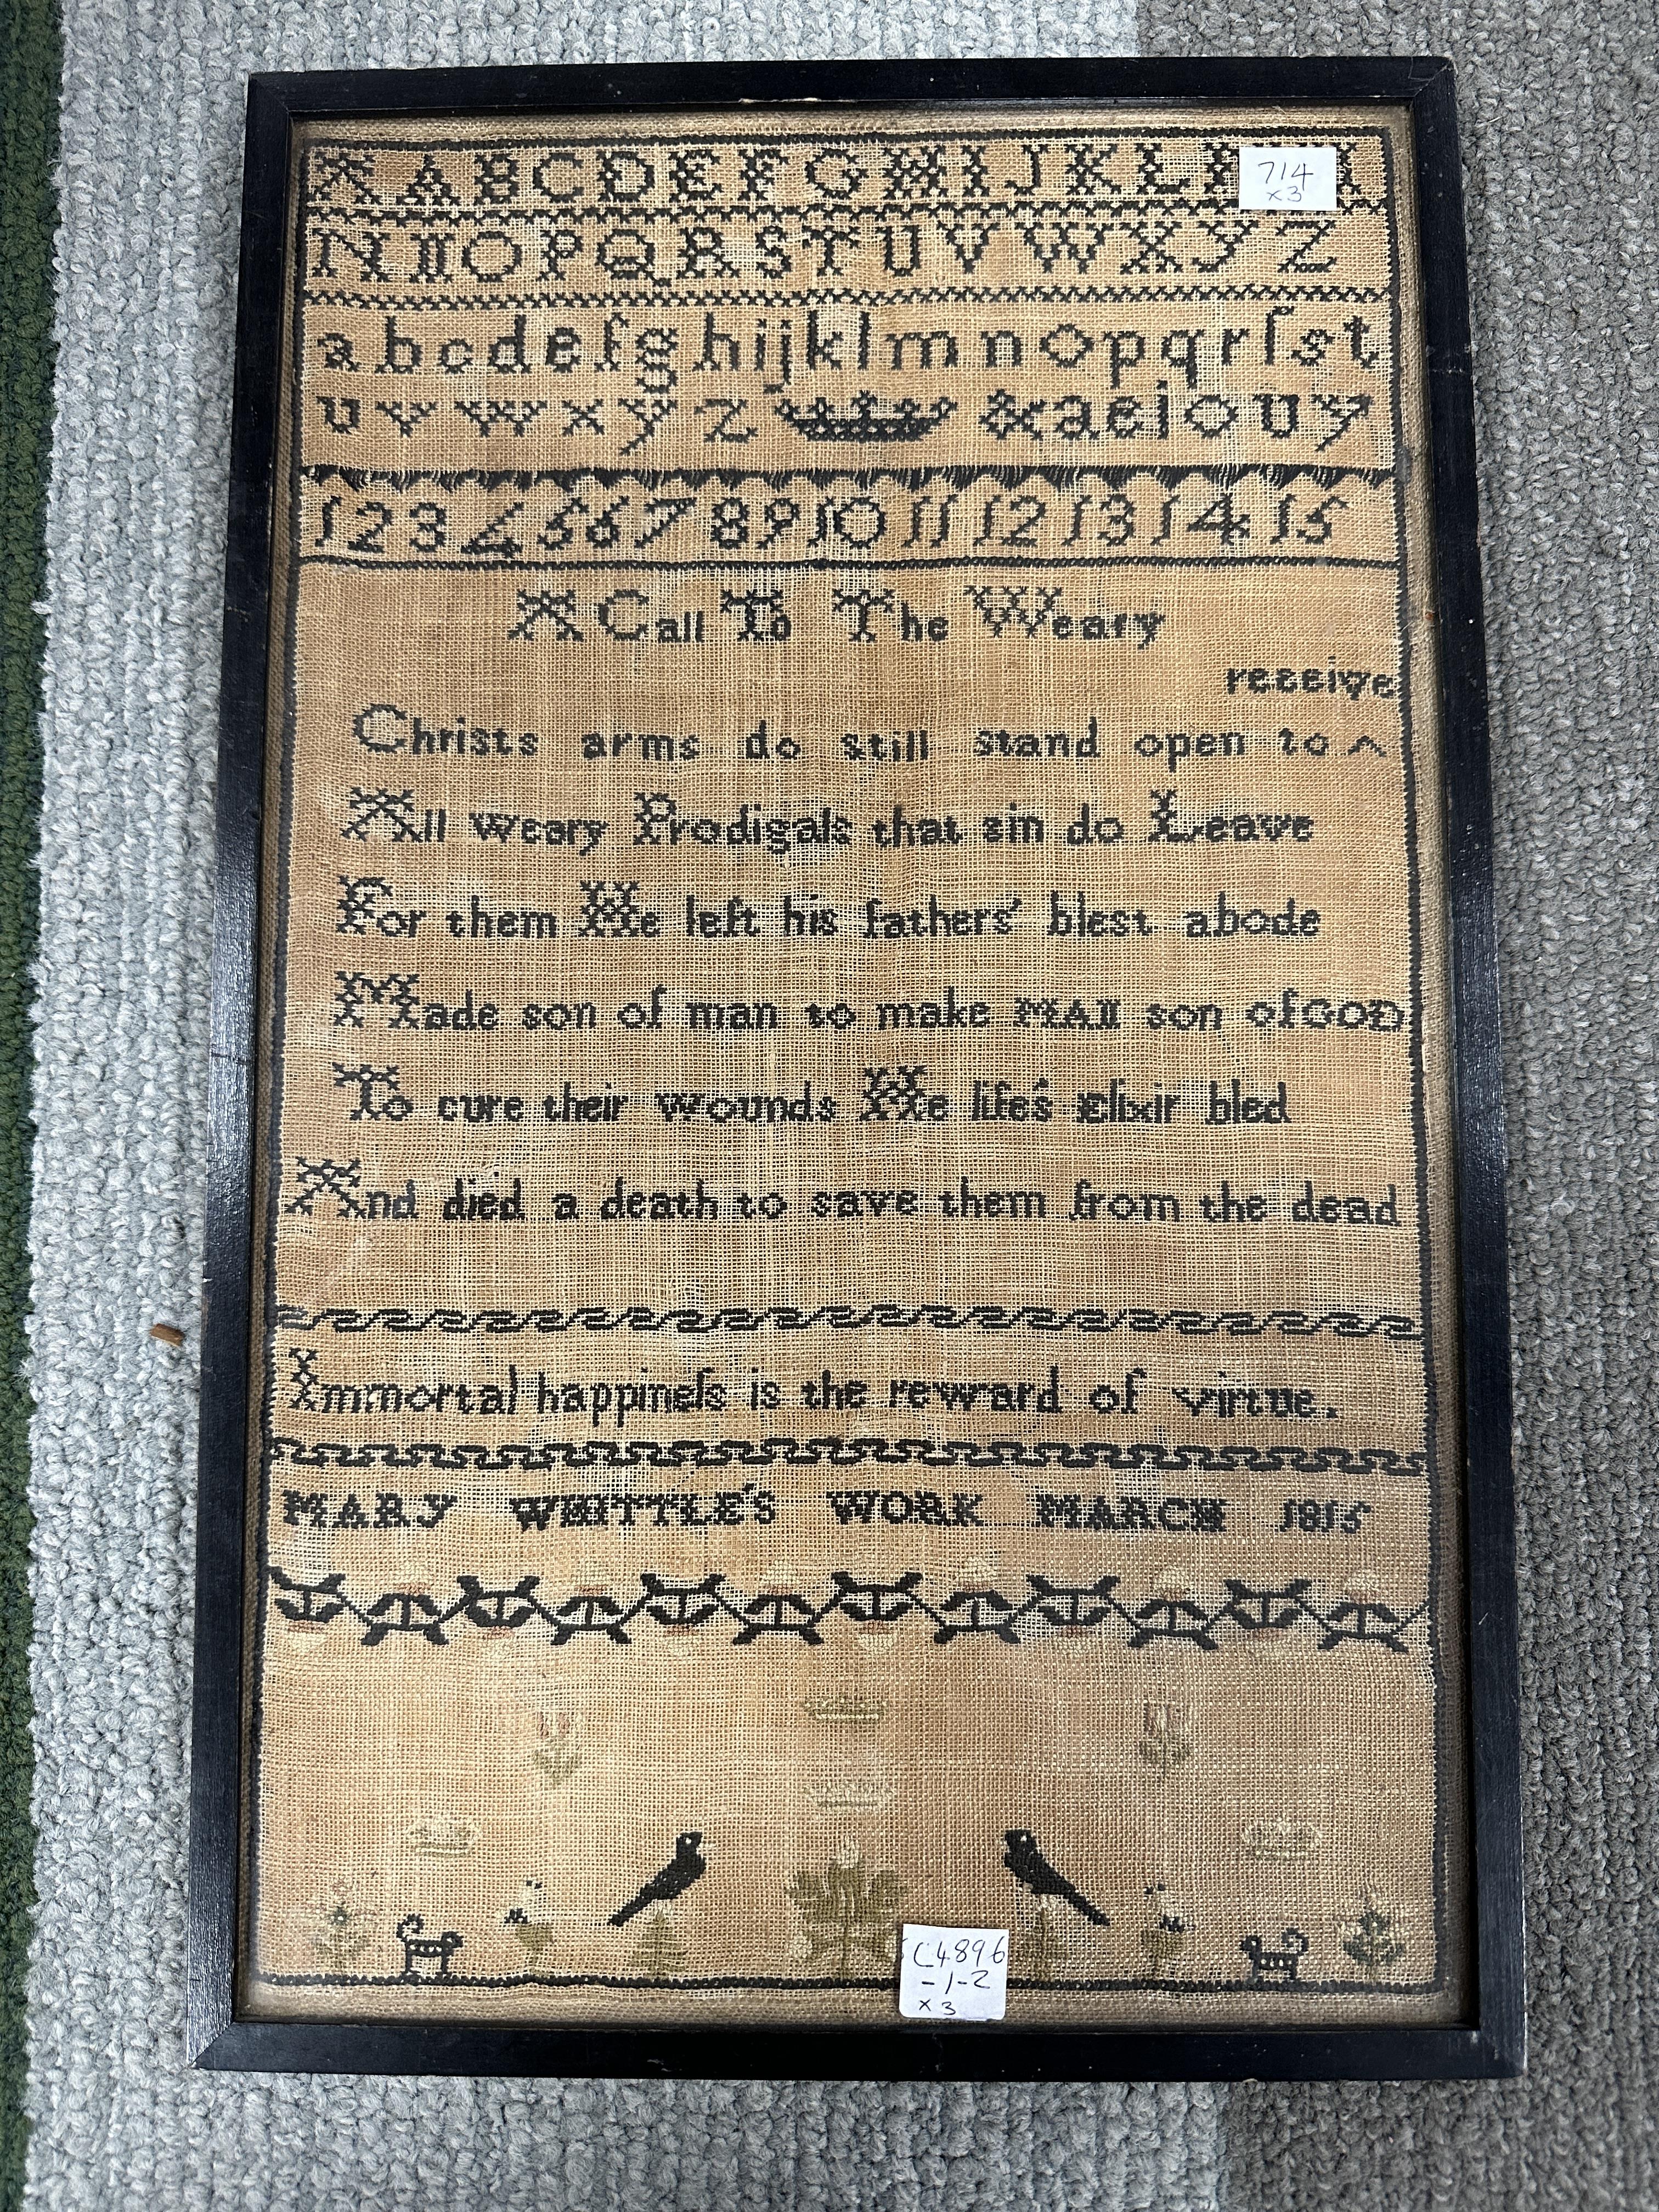 A A B C D E F G H I J K L
714
x3
N II O P Q R S T U V W X Y Z
a b c d e f g h i j k l m n o p q r ſ s t
u v w x y z & a e i o u y
1 2 3 4 5 6 7 8 9 10 11 12 13 14 15
A Call To The Weary
receive
Christs arms do still stand open to ^
All weary Prodigals that sin do Leave
For them He left his fathers' blest abode
Made son of man to make MAII son of GOD
To cure their wounds He life's Elixir bled
And died a death to save them from the dead
Immortal happineſs is the reward of virtue.
MARY WHITTLE'S WORK MARCH 1815
C4896
-1-2
x3